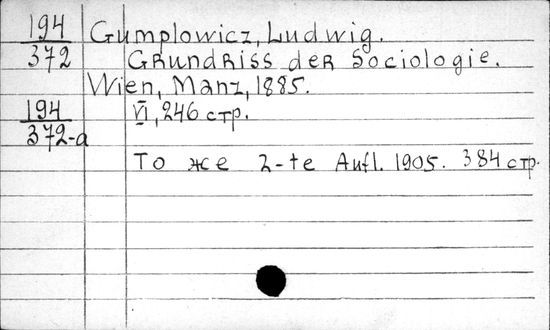 194 Gumplowicz, Ludwig.
372 Grundriss der Sociologie.
Wien, Manz, 1885.
194 VI, 246 стр.
372-a
То же 2-te Aufl. 1905. 384 стр.